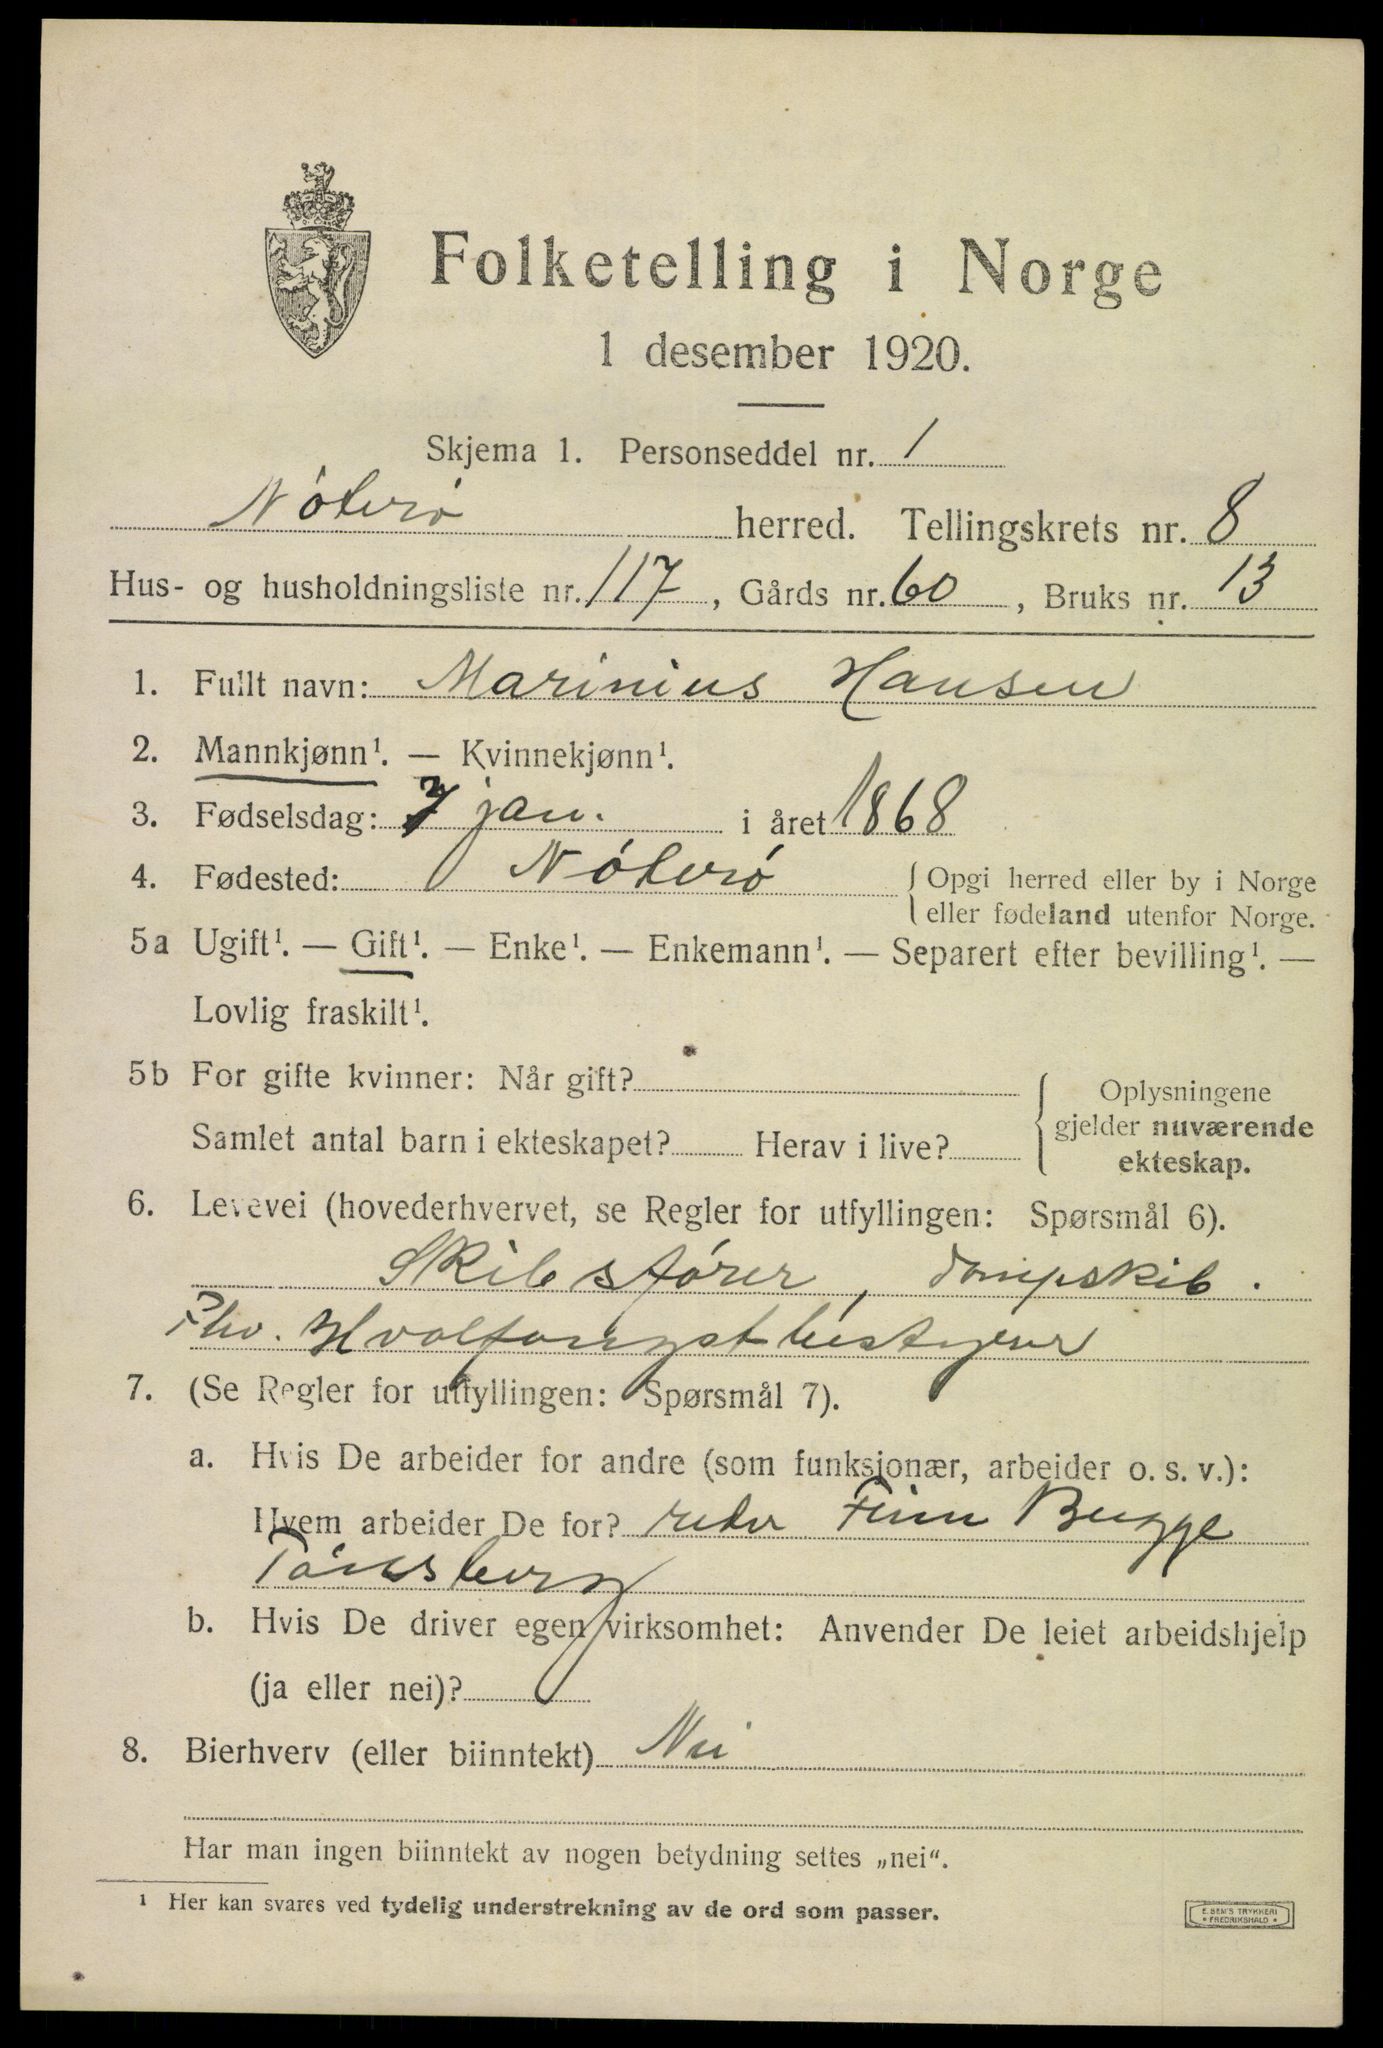 Folketelling i Norge
1 desember 1920.
Skjema 1. Personseddel nr. 1
Nöterö herred. Tellingskrets nr. 8
Hus- og husholdningsliste nr. 117, Gårds nr. 60, Bruks nr. 13
1. Fullt navn: Marinius Hansen
2. Mannkjønn¹. — Kvinnekjønn¹.
3. Fødselsdag: 7 jan. i året 1868
4. Fødested: Nöterö { Opgi herred eller by i Norge
eller fødeland utenfor Norge.
5a Ugift¹. — Gift¹. — Enke¹. — Enkemann¹. — Separert efter bevilling¹. —
Lovlig fraskilt¹.
5b For gifte kvinner: Når gift?
Samlet antal barn i ekteskapet? Herav i live?
{ Oplysningene
gjelder nuværende
ekteskap.
6. Levevei (hovederhvervet, se Regler for utfyllingen: Spørsmål 6).
Skibsförer, Dampskib.
Hvalfangstbestyrer
7. (Se Regler for utfyllingen: Spørsmål 7).
a. Hvis De arbeider for andre (som funksjonær, arbeider o. s. v.):
Hvem arbeider De for? reder Finn Bugge
Tönsberg
b. Hvis De driver egen virksomhet: Anvender De leiet arbeidshjelp
(ja eller nei)?
8. Bierhverv (eller biinntekt) Nei
Har man ingen biinntekt av nogen betydning settes „nei“.
¹ Her kan svares ved tydelig understrekning av de ord som passer.
E. SEM'S TRYKKERI
• FREDRIKSHALD •